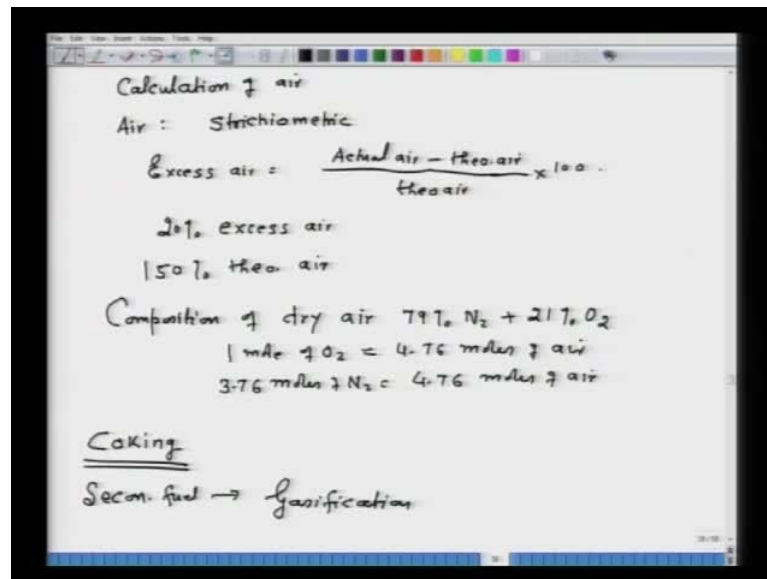 Calculation of air
Air : Stoichiometric
Excess air = Actual air - theo. air / theo air × 100.
20% excess air
150% theo. air
Composition of dry air 79% N2 + 21% O2
1 mole of O2 = 4.76 moles of air
3.76 moles of N2 = 4.76 moles of air
Coking
Secon. fuel → Gasification